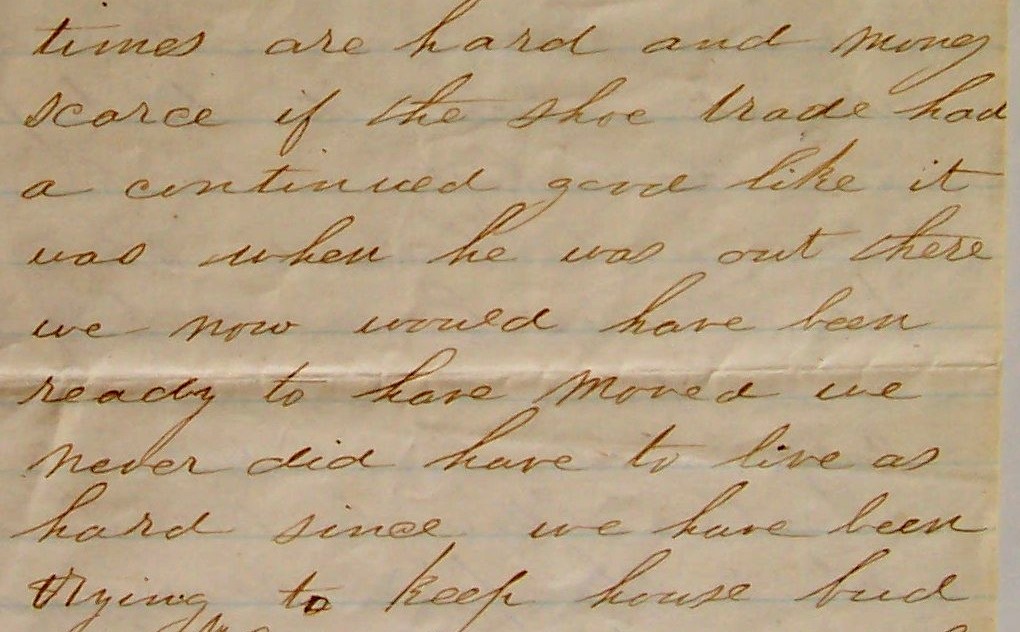 times are hard and money
scarce if the shoe trade had
a continued good like it
was when he was out there
we now would have been
ready to have moved we
never did have to live as
hard since we have been
trying to keep house bud